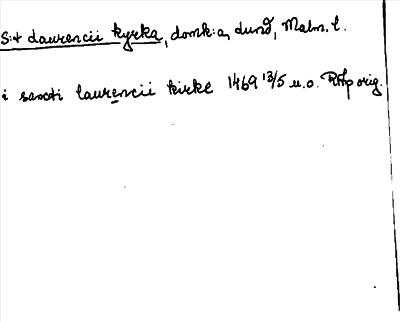 S:t Laurencii kyrka, domk:a, Lund, Malm. l.
i sancti laurencii kirke 1469 13/5 u.o. RAp orig.